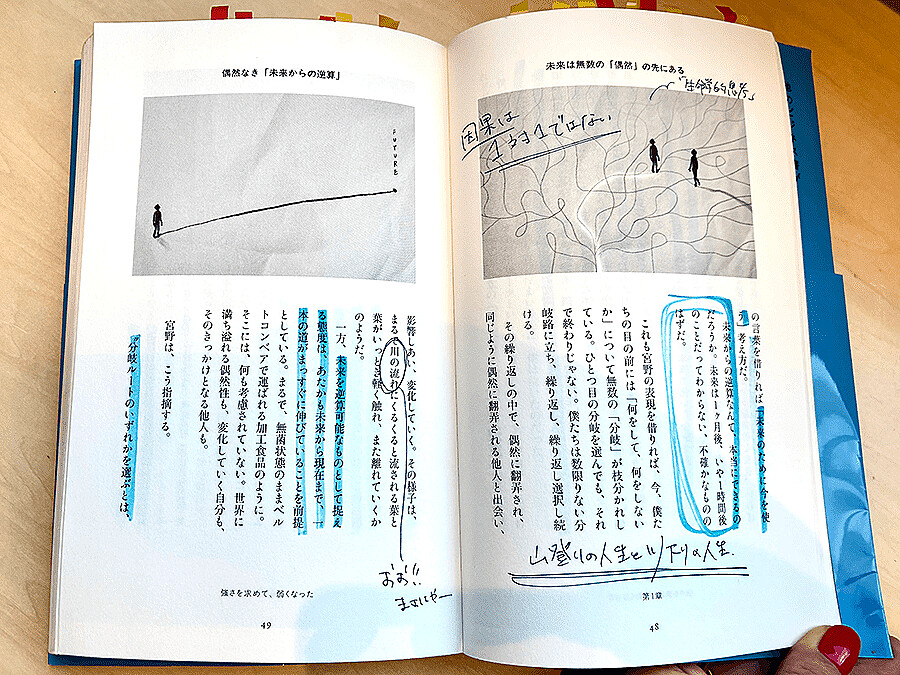 未来は無数の「偶然」の先にある
因果は
1対1ではない
の言葉を借りれば「未来のために今を使
う」考え方だ。
未来からの逆算なんて、本当にできるの
だろうか。未来は1ヶ月後、いや1時間後
のことだってわからない、不確かなものの
はずだ。
これも宮野の表現を借りれば、今、僕た
ちの目の前には「何をして、何をしない
か」について無数の「分岐」が枝分かれし
ている。ひとつ目の分岐を選んでも、それ
で終わりじゃない。僕たちは数限りない分
岐路に立ち、繰り返し、繰り返し選択し続
ける。
その繰り返しの中で、偶然に翻弄され、
同じように偶然に翻弄される他人と出会い、
山登りの人生と川下りの人生.
第1章
48
偶然なき「未来からの逆算」
FUTURE
影響しあい、変化していく。その様子は、
まるで川の流れにくるくると流される葉と
葉が、いっとき軽く触れ、また離れていくか
のようだ。
一方、未来を逆算可能なものとして捉え
る態度は、あたかも未来から現在まで、一
本の道がまっすぐに伸びていることを前提
としている。まるで、無菌状態のままベル
トコンベアで運ばれる加工食品のように。
そこには、何も考慮されていない。世界に
満ち溢れる偶然性も、変化していく自分も、
そのきっかけとなる他人も。
宮野は、こう指摘する。
“分岐ルートのいずれかを選ぶとは、
おお!!
まさにやー
強さを求めて、弱くなった
49